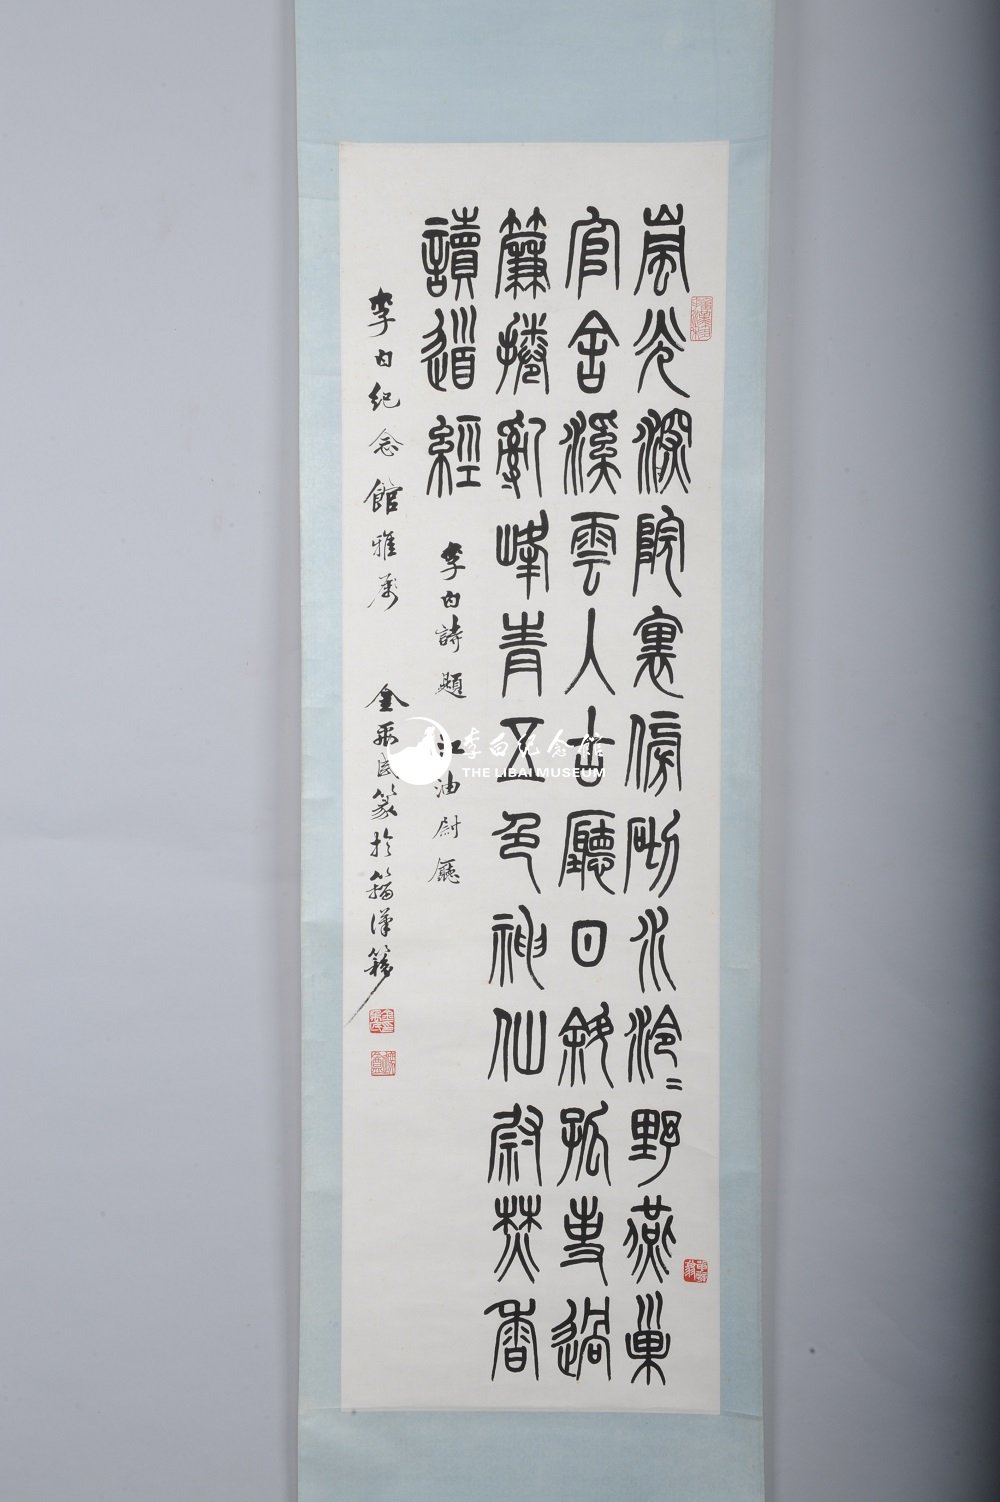 嵐光深院裏傍砌水泠〻野燕巢
官舍溪雲入古廳日斜孤吏過
簾捲亂峰青五色神仙尉焚香
讀道經 李白詩題江油尉廳
李白紀念館雅屬 金禹民篆於籀漢簃
李白纪念館
THE LIBAI MUSEUM